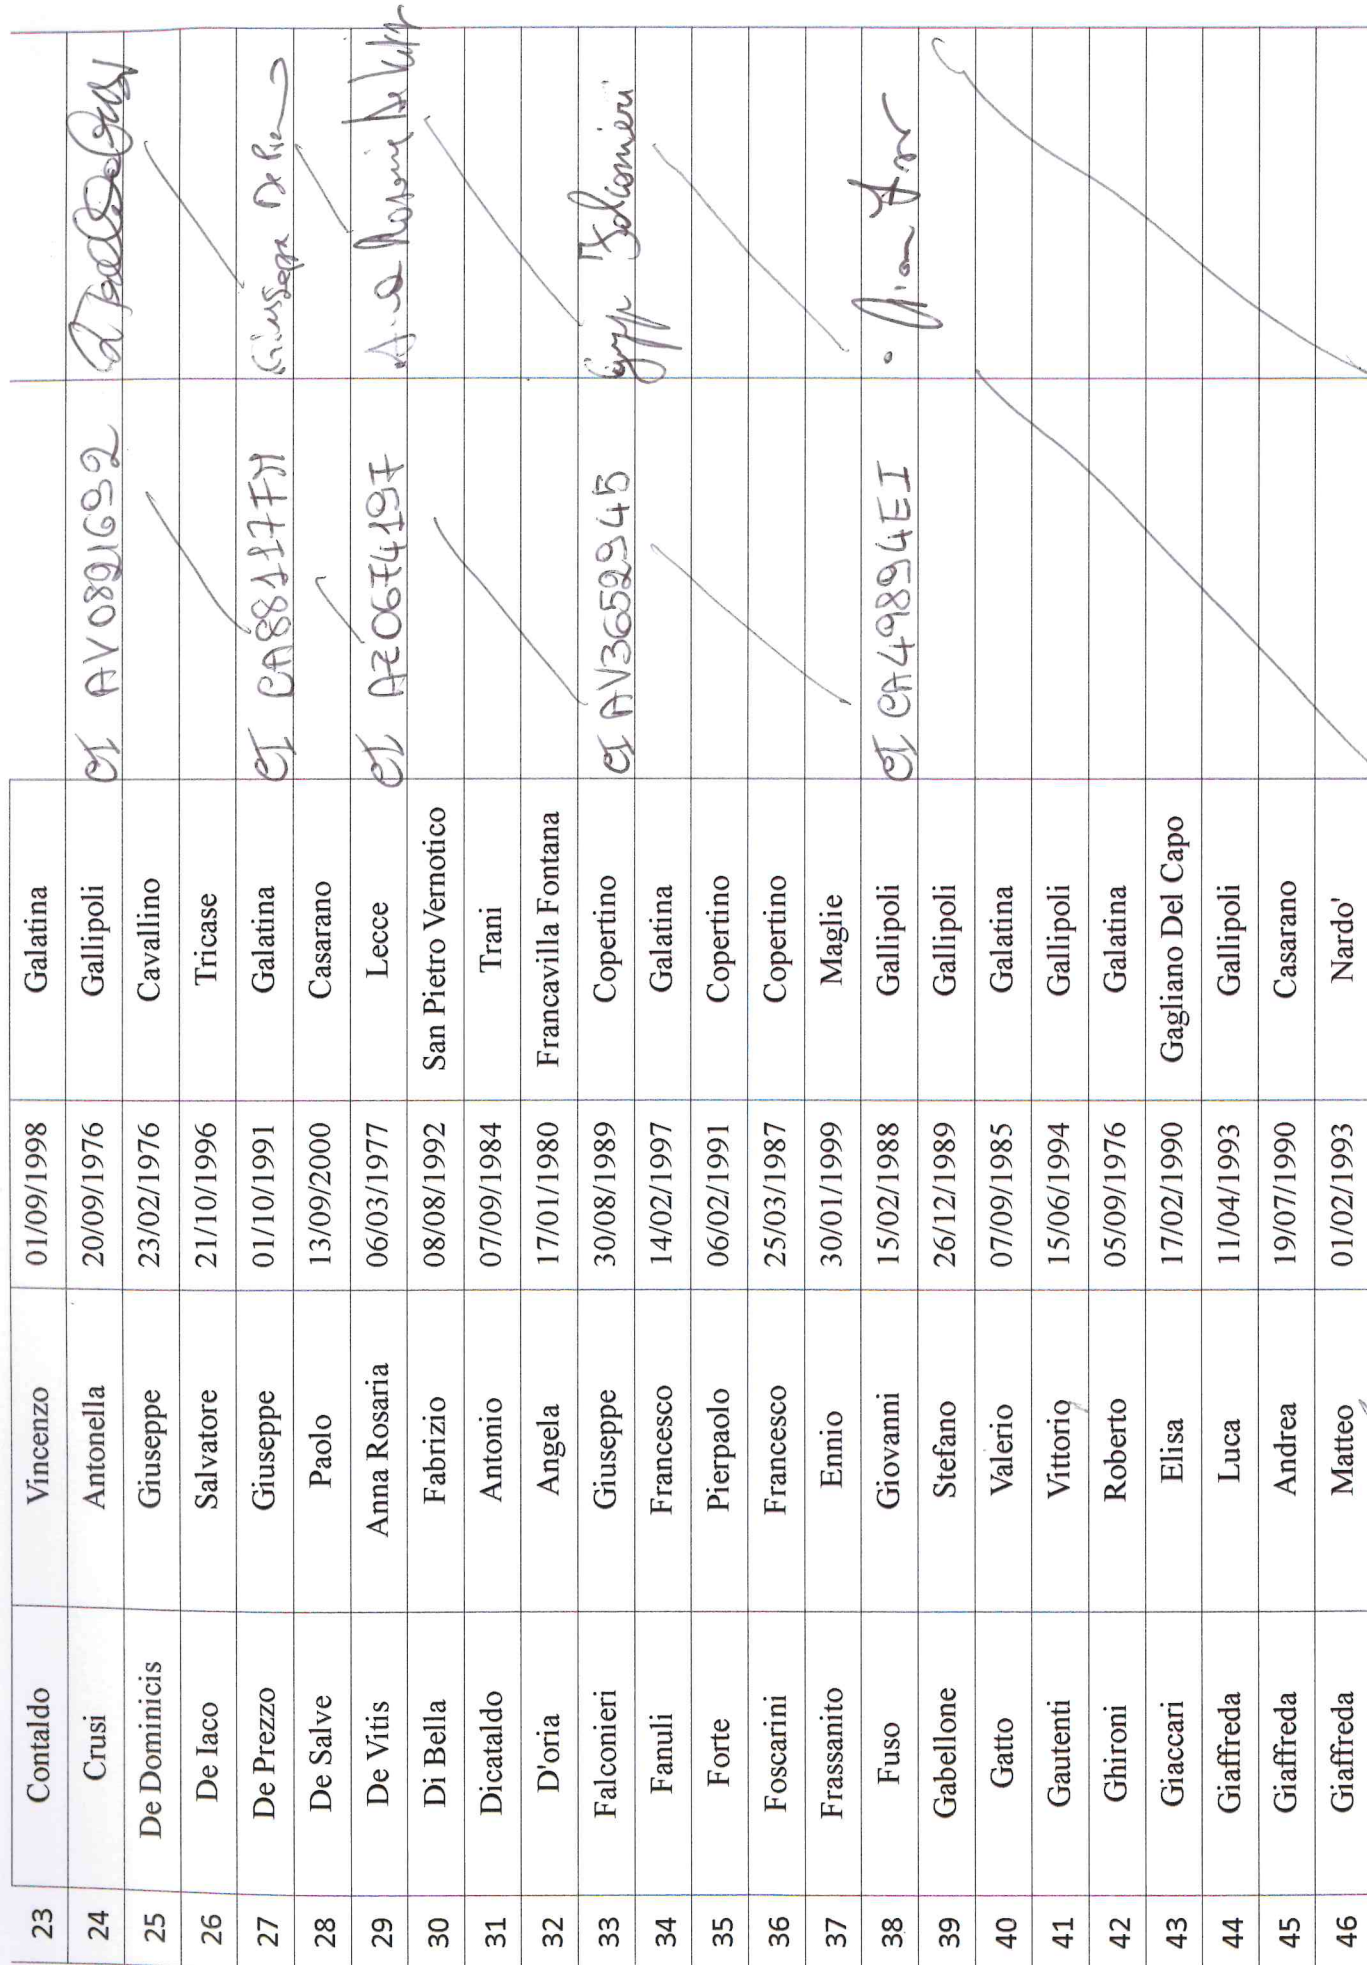 23 Contaldo Vincenzo 01/09/1998 Galatina
24 Crusi Antonella 20/09/1976 Gallipoli CI AV0821692
25 De Dominicis Giuseppe 23/02/1976 Cavallino
26 De Iaco Salvatore 21/10/1996 Tricase
27 De Prezzo Giuseppe 01/10/1991 Galatina CI CA88117FM Giuseppe De Prezzo
28 De Salve Paolo 13/09/2000 Casarano
29 De Vitis Anna Rosaria 06/03/1977 Lecce CI AZ0674197 Anna Rosaria De Vitis
30 Di Bella Fabrizio 08/08/1992 San Pietro Vernotico
31 Dicataldo Antonio 07/09/1984 Trani
32 D'oria Angela 17/01/1980 Francavilla Fontana
33 Falconieri Giuseppe 30/08/1989 Copertino CI AV3652945 Falconieri
34 Fanuli Francesco 14/02/1997 Galatina
35 Forte Pierpaolo 06/02/1991 Copertino
36 Foscarini Francesco 25/03/1987 Copertino
37 Frassanito Ennio 30/01/1999 Maglie
38 Fuso Giovanni 15/02/1988 Gallipoli CI CA49894EI
39 Gabellone Stefano 26/12/1989 Gallipoli
40 Gatto Valerio 07/09/1985 Galatina
41 Gautenti Vittorio 15/06/1994 Gallipoli
42 Ghironi Roberto 05/09/1976 Galatina
43 Giaccari Elisa 17/02/1990 Gagliano Del Capo
44 Giaffreda Luca 11/04/1993 Gallipoli
45 Giaffreda Andrea 19/07/1990 Casarano
46 Giaffreda Matteo 01/02/1993 Nardo'